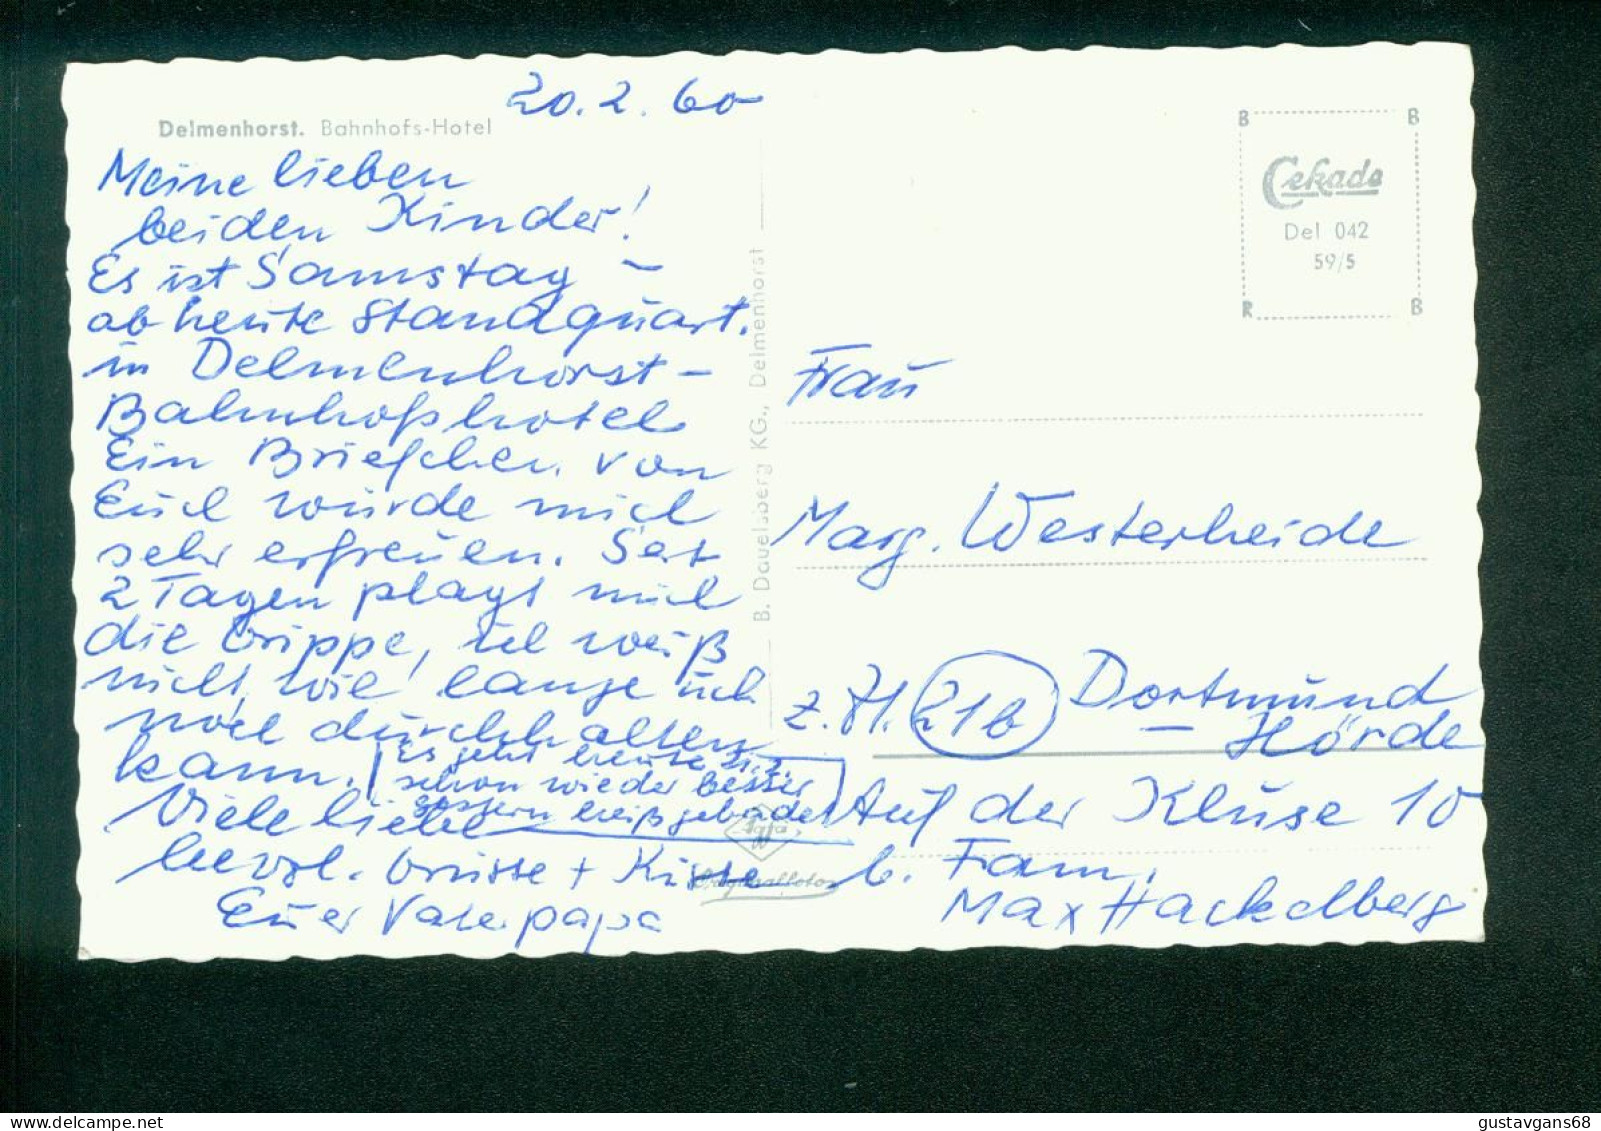 20.2.60
Delmenhorst. Bahnhofs-Hotel
Meine lieben
beiden Kinder!
Es ist Samstag -
ab heute Standquart.
in Delmenhorst -
Bahnhofshotel
Ein Briefchen von
Euch würde mich
sehr erfreuen. Seit
2 Tagen plagt mich
die Grippe, ich weiß
nicht, wie lange ich
noch durchhalten
kann. Es geht heute
schon wieder besser
gestern heiß gebadet
Viele liebe
herzl. Grüsse + Küsse
Euer Vaterpapa
B. Dauelsberg KG., Delmenhorst
Agfa
Originalfoto
B B
Cekade
Del 042
59/5
R B
Frau
Marg. Westerheide
z. Zt. 21b Dortmund
- Hörde
Auf der Kluse 10
b. Fam.
Max Hackelberg
gustavgans68